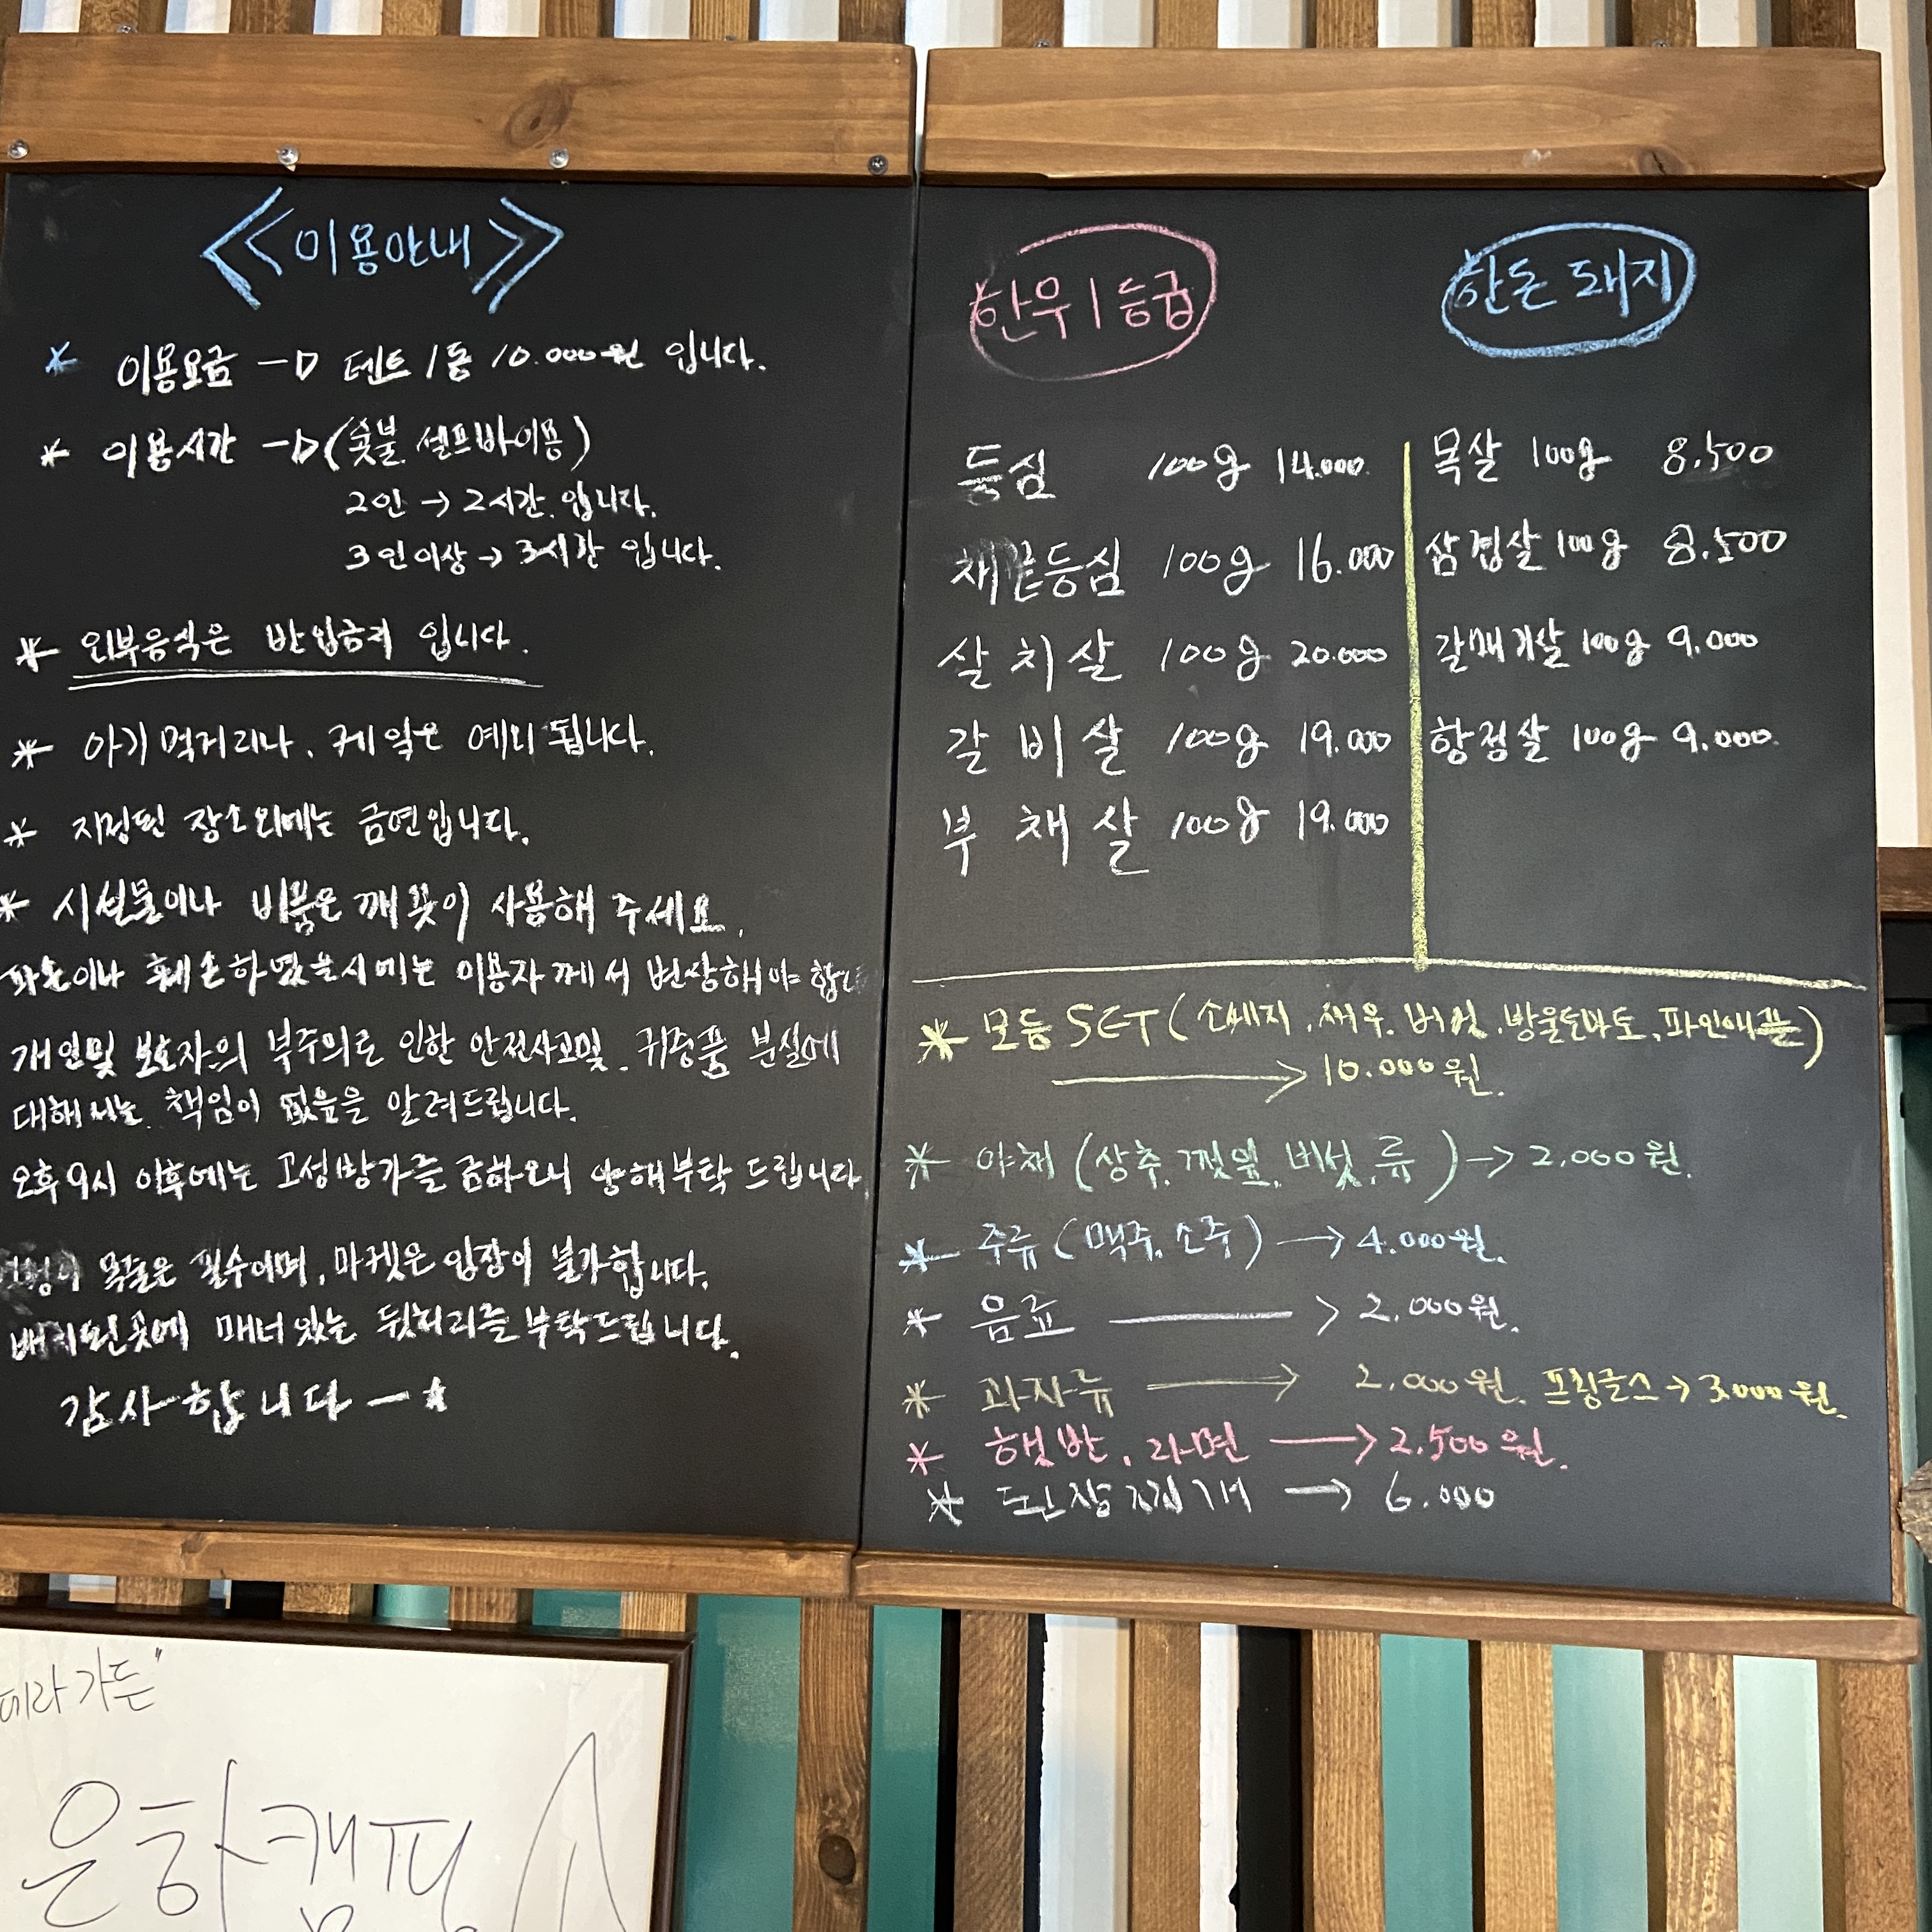 <<이용안내>>
* 이용요금 → 텐트 1동 10.000원 입니다.
* 이용시간 → (숯불. 셀프바이용)
2인 → 2시간. 입니다.
3인이상 → 3시간 입니다.
* 외부음식은 반입금지 입니다.
* 아기먹거리나, 케잌은 예외 됩니다.
* 지정된 장소외에는 금연입니다.
* 시설물이나 비품은 깨끗이 사용해 주세요.
파손이나 훼손하였을시에는 이용자께서 변상해야 합니
개인및 보호자의 부주의로 인한 안전사고및. 귀중품 분실에
대해서는. 책임이 없음을 알려드립니다.
오후9시 이후에는 고성방가를 금하오니 양해부탁 드립니다.
목줄은 필수이며, 마켓은 입장이 불가합니다.
배치된곳에 매너있는 뒷처리를 부탁드립니다.
감사합니다 — ★
한우 1등급
등심 100g 14.000
채끝등심 100g 16.000
살치살 100g 20.000
갈비살 100g 19.000
부채살 100g 19.000
한돈 돼지
목살 100g 8.500
삼겹살 100g 8.500
갈매기살 100g 9.000
항정살 100g 9.000.
* 모듬 SET (소세지, 새우. 버섯, 방울토마토, 파인애플)
→ 10.000원.
* 야채 (상추. 깻잎. 버섯.류) → 2,000원.
* 주류 (맥주, 소주) → 4.000원.
* 음료 → 2,000원.
* 과자류 → 2,000원. 프링글스 → 3.000원.
* 햇반. 라면 → 2.500원.
* 된장찌개 → 6.000
테라가든"
은하캠핑